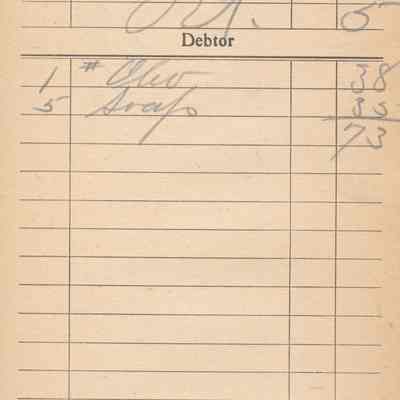 5
Debtor
1 # Oleo 38
5 Soaps 35
73